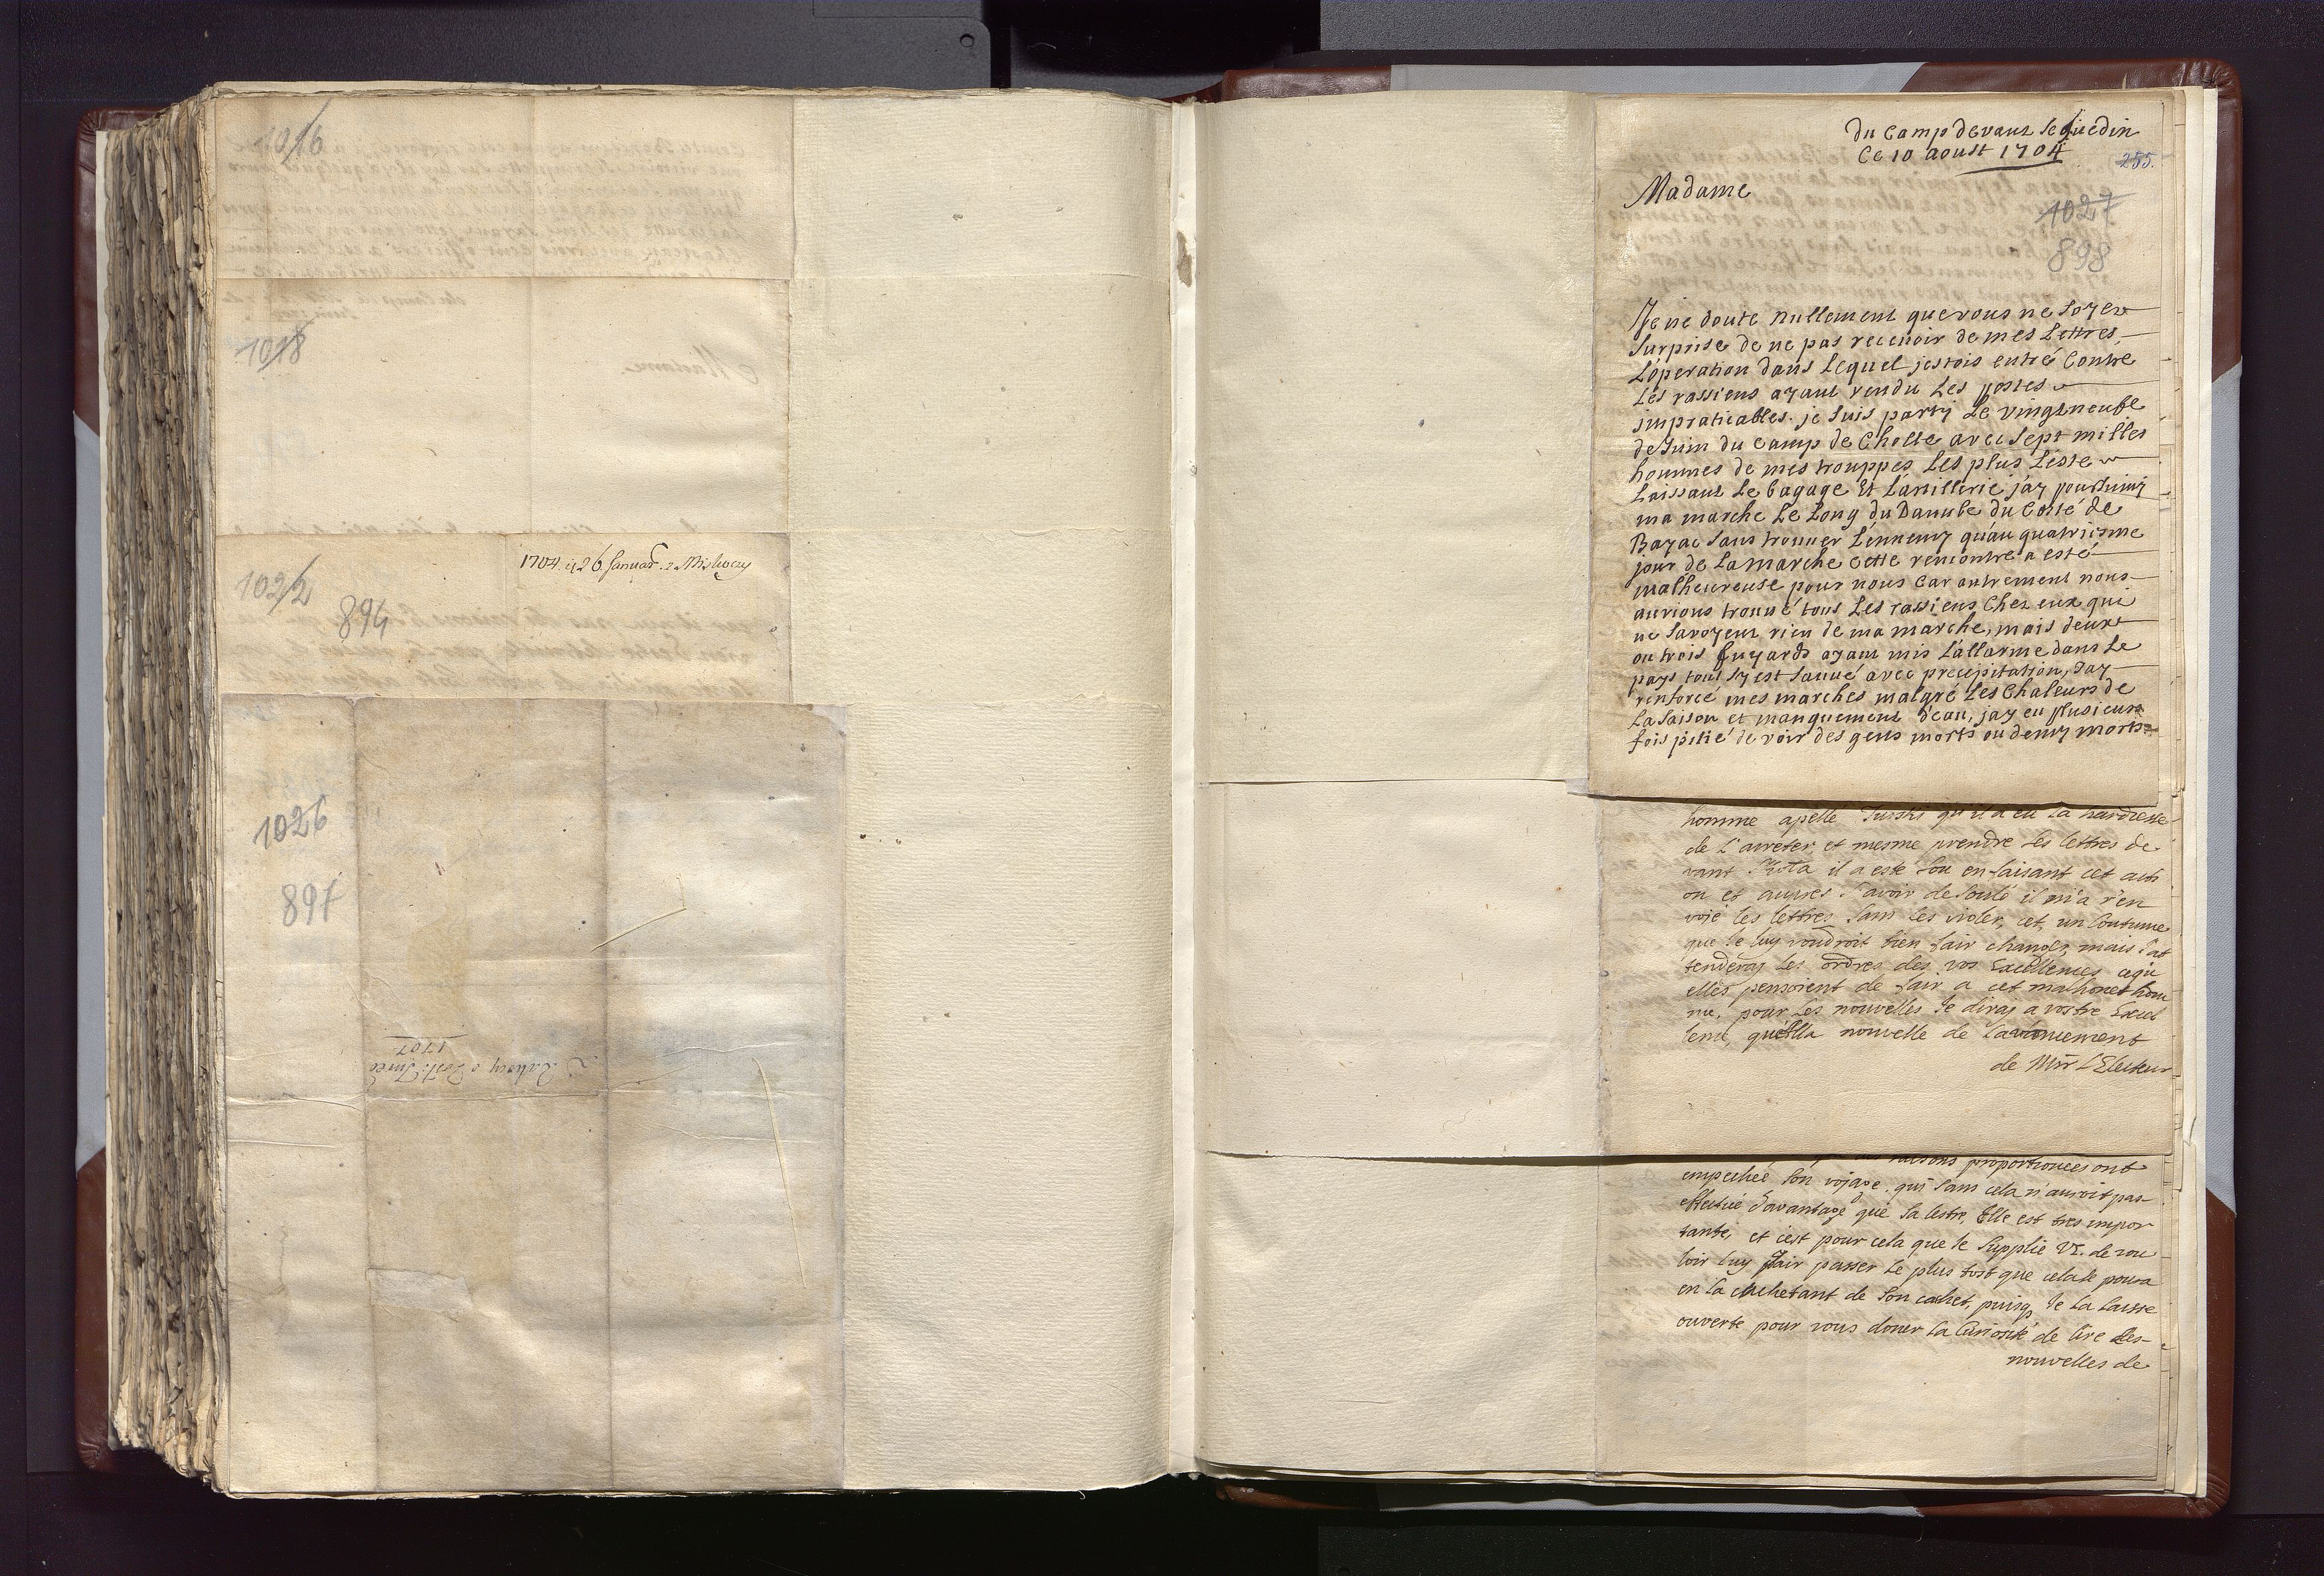 1016
1018
1704 26 Januar.
1022
894
1026
897
1707
du Camp devant
Ce 10 aoust 1704
255.
Madame
1027
898
Je ne doute nullement que vous ne soyez
surprise de ne pas recevoir de mes Lettres,
L'operation dans Lequel jestois entré Contre
Les rassiens ayant rendu Les postes
impraticables. je suis party Le vingtneufe
de Juin du Camp de avec sept milles
hommes de mes trouppes Les plus Leste
Laissant Le bagage Et Lartillerie j'ay poursuivy
ma marche Le Long du Danube du Costé de
sans trouver L'ennemy qu'au quatriesme
jour de La marche Cette rencontre a esté
malheureuse pour nous Car autrement nous
aurions trouvé tous Les rassiens Chez eux qui
ne savoyent rien de ma marche, mais deux
ou trois fuyards ayant mis L'allarme dans Le
pays tout s'y est sauvé avec precipitation, Jay
renforcé mes marches malgré Les Chaleurs de
La saison et manquement d'eau, jay eu plusieurs
fois pitié de voir des gens morts ou demy morts
homme apellé qu'il a eu La hardiesse
de L'arreter, et mesme prendre Les lettres de
vant il a esté sou en faisant cet acti
on et aupres s'avoir desoulé il m'a r'en
voié les lettres sans les violer, cet, un Coutume
que Je luy voudroit bien fair changer, mais J'at
tenderay Les ordres des vos Excellences cequ
elles pensoient de fair a cet malhonet hom
me, pour Les nouvelles Je diray a vostre Excel
lence, nouvelle de
de Mrr L'Electeur
raisons proportionees ont
empechée son vojage. qui sans cela n'auroit pas
effectué d'avantage que Sa lettre, Elle est tres impor
tante, et c'est pour cela que Je Supplie VE. de vou
loir luy fair passer Le plus tost que cela se poura
en La cachetant de Son cachet, puisq Je La Laisse
ouverte pour vous doner La Curiosité de lire Les
nouvelles de